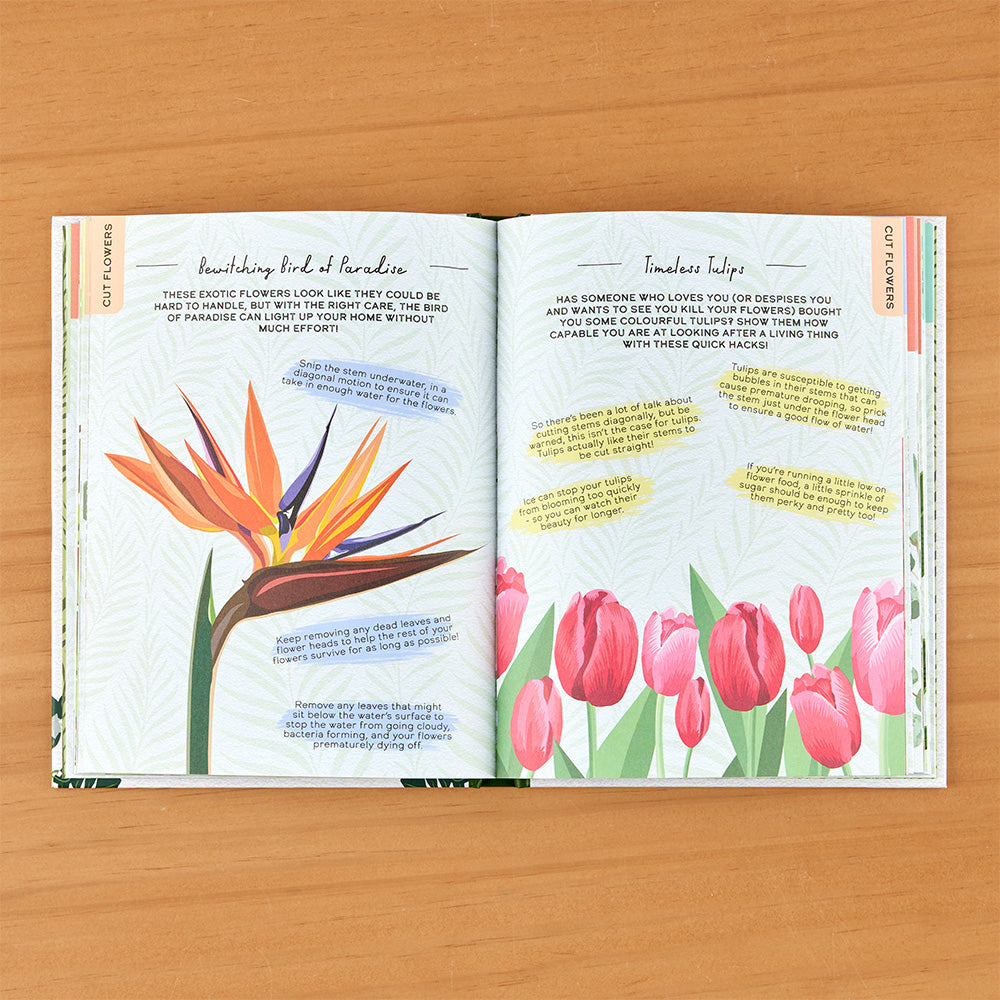 CUT FLOWERS
Bewitching Bird of Paradise
THESE EXOTIC FLOWERS LOOK LIKE THEY COULD BE
HARD TO HANDLE, BUT WITH THE RIGHT CARE, THE BIRD
OF PARADISE CAN LIGHT UP YOUR HOME WITHOUT
MUCH EFFORT!
Snip the stem underwater, in a
diagonal motion to ensure it can
take in enough water for the flowers.
Keep removing any dead leaves and
flower heads to help the rest of your
flowers survive for as long as possible!
Remove any leaves that might
sit below the water's surface to
stop the water from going cloudy,
bacteria forming, and your flowers
prematurely dying off.
CUT FLOWERS
Timeless Tulips
HAS SOMEONE WHO LOVES YOU (OR DESPISES YOU
AND WANTS TO SEE YOU KILL YOUR FLOWERS) BOUGHT
YOU SOME COLOURFUL TULIPS? SHOW THEM HOW
CAPABLE YOU ARE AT LOOKING AFTER A LIVING THING
WITH THESE QUICK HACKS!
So there's been a lot of talk about
cutting stems diagonally, but be
warned, this isn't the case for tulips.
Tulips actually like their stems to
be cut straight!
Tulips are susceptible to getting
bubbles in their stems that can
cause premature drooping, so prick
the stem just under the flower head
to ensure a good flow of water!
Ice can stop your tulips
from blooming too quickly
- so you can watch their
beauty for longer.
If you're running a little low on
flower food, a little sprinkle of
sugar should be enough to keep
them perky and pretty too!